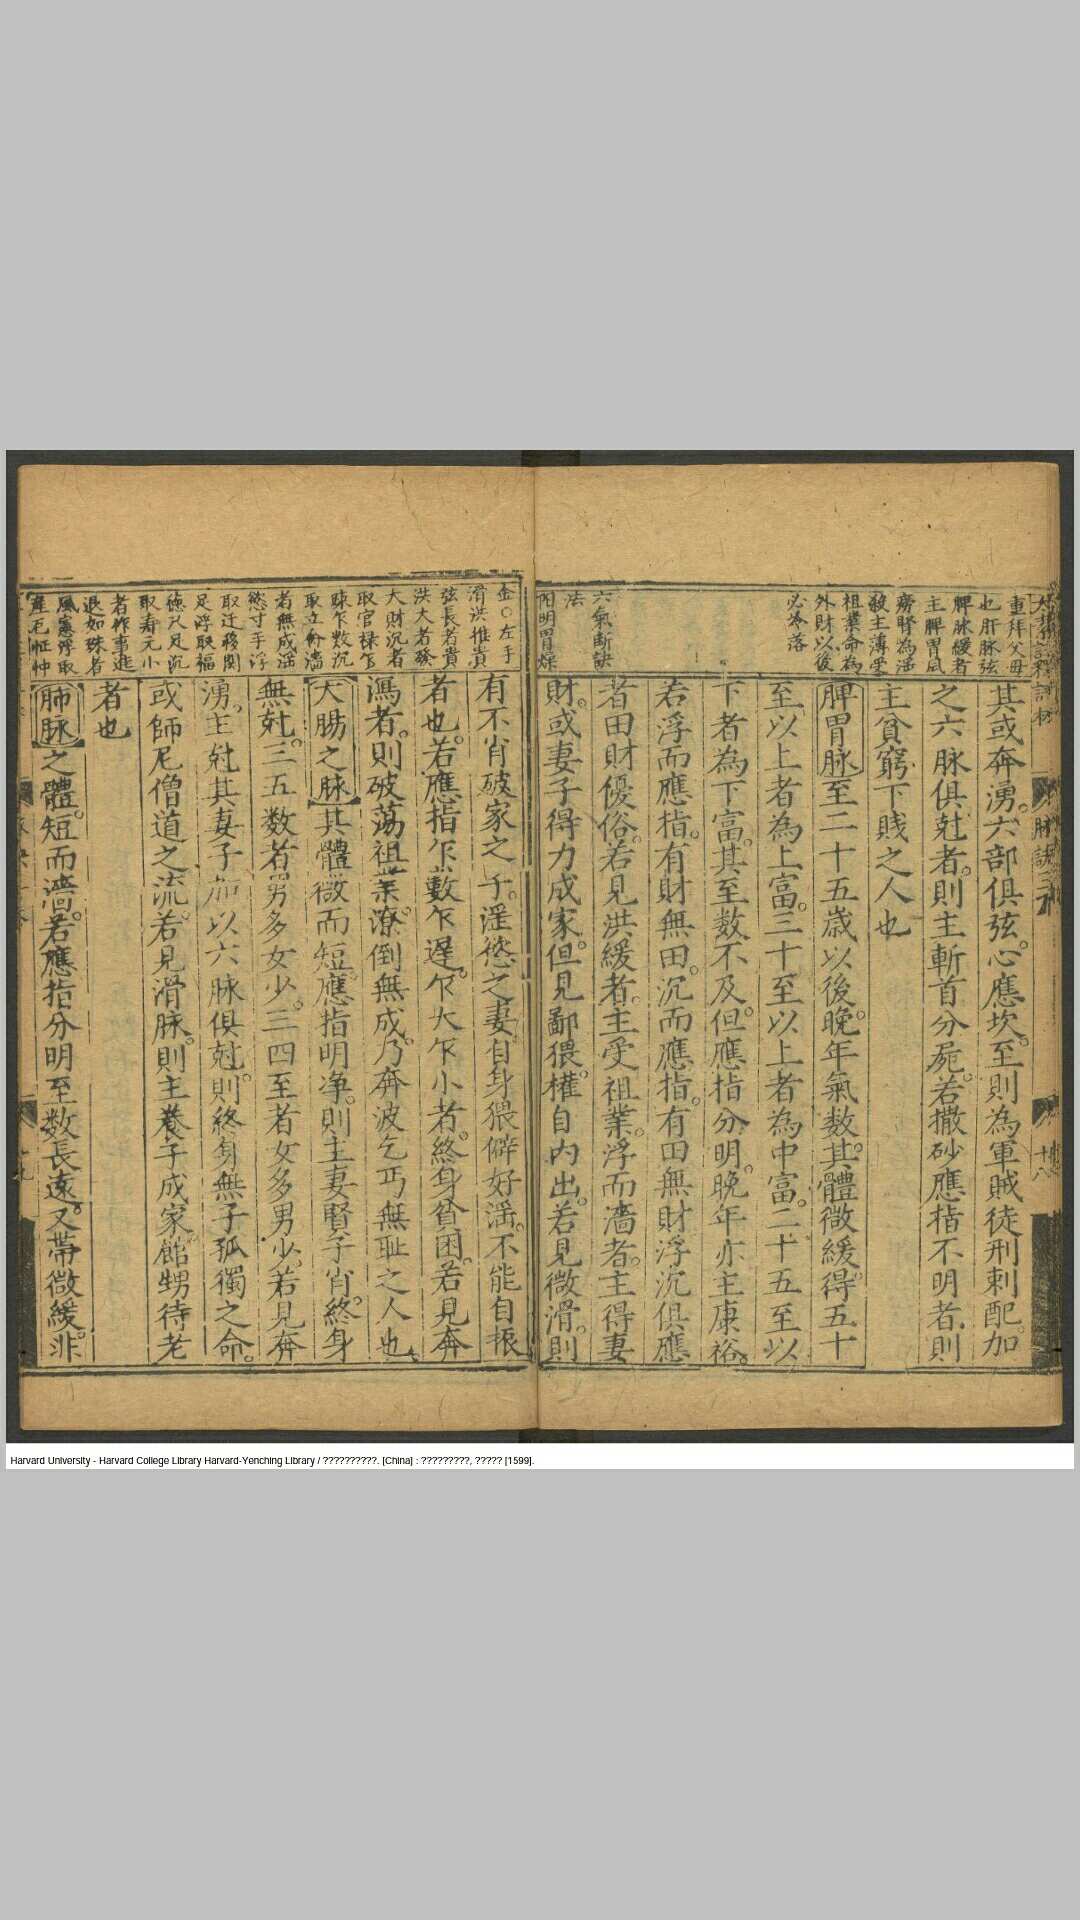 重拜父母
也肝脉弦
脾脉緩者
主脾胃風
勞腎為滛
殺主薄受
祖業命為
外財以後
必冷落
六氣断訣
法
陽明胃燥
其或奔湧。六部俱弦。心應坎。至則為軍賊徒刑刺配。加
之六脉俱尅者。則主斬首分屍。若撒砂應指不明者。則
主貧窮下賤之人也
脾胃脉至二十五歳以後。晚年氣数。其體微緩。得五十
至以上者為上富。三十至以上者為中富。二十五至以
下者為下富。其至数不及。但應指分明。晚年亦主康裕。
若浮而應指。有財無田。沉而應指。有田無財。浮沉俱應
者。田財優俗。若見洪緩者。主受祖業。浮而濇者。主得妻
財。或妻子得力成家。但見鄙猥。權自内出。若見微滑。則
金○左手
滑洪惟貴
弦長者貴
洪大者發
大財沉者
取官禄乍
踈乍数沉
取立命濇
者無成滛
慾寸手浮
取迁移関
足浮取福
德尺足沉
取寿元小
者作事進
退如珠者
風憲浮取
有不肖破家之子。滛慾之妻。自身猥僻好滛。不能自振
者也。若應指乍數乍遲。乍大乍小者。終身貧困。若見奔
瀉者。則破荡祖業。潦倒無成。乃奔波乞丐無耻之人也
大腸之脉。其體微而短。應指明净。則主妻賢子肖。終身
無尅。三五数者男多女少。三四至者女多男少。若見奔
湧。主尅其妻子。加以六脉俱尅。則終身無子孤獨之命。
或師尼僧道之流。若見滑脉。則主養子成家。館甥待老
者也
肺脉之體。短而濇。若應指分明。至数長遠。又帶微緩。非
脉訣
十八
Harvard University - Harvard College Library Harvard-Yenching Library / ??????????. [China] : ?????????, ????? [1599].